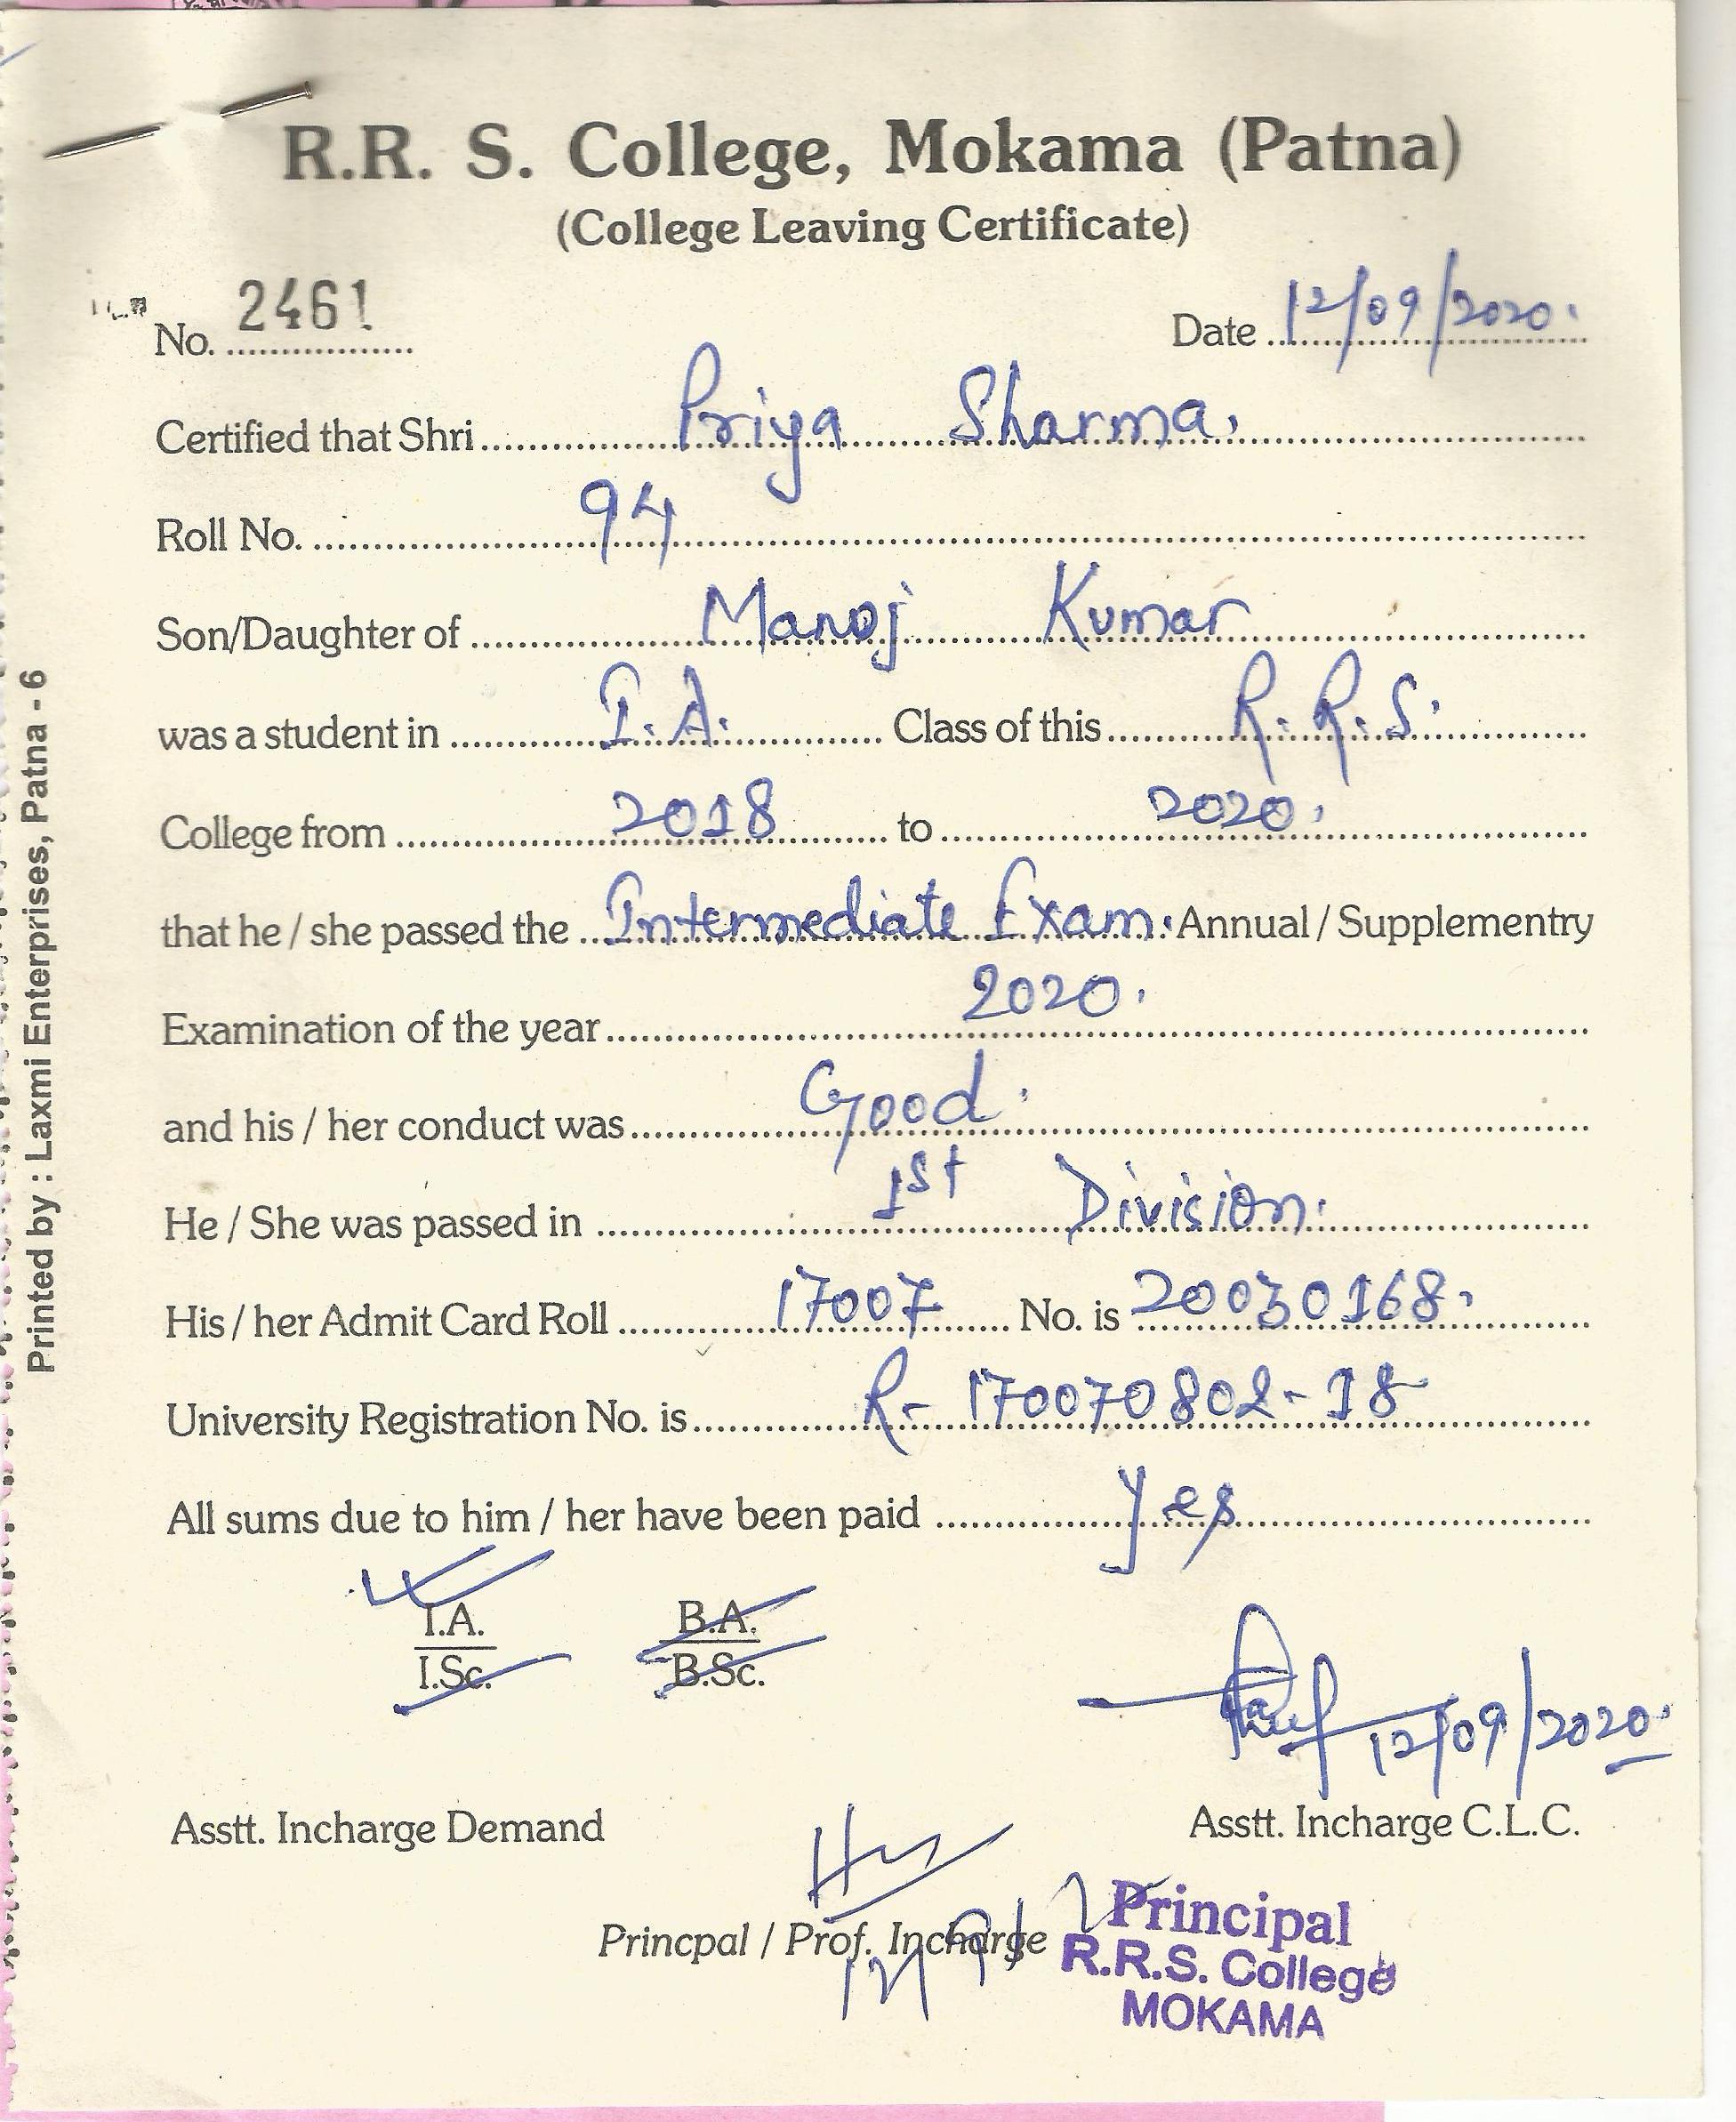 R.R. S. College, Mokama (Patna)
(College Leaving Certificate)
No. 2461
Date 12/09/2020.
Certified that Shri Priya Sharma.
Roll No. 94
Son/Daughter of Manoj Kumar
was a student in I.A. Class of this R.R.S.
College from 2018 to 2020.
that he / she passed the Intermediate Exam. Annual / Supplementry
Examination of the year 2020.
and his / her conduct was Good.
He / She was passed in 1st Division.
His / her Admit Card Roll 17007 No. is 20030168.
University Registration No. is R- 170070802-18
All sums due to him / her have been paid yes
I.A. B.A.
I.Sc. B.Sc.
12/09/2020.
Asstt. Incharge Demand
Asstt. Incharge C.L.C.
Princpal / Prof. Incharge
Principal
R.R.S. College
MOKAMA
Printed by : Laxmi Enterprises, Patna - 6